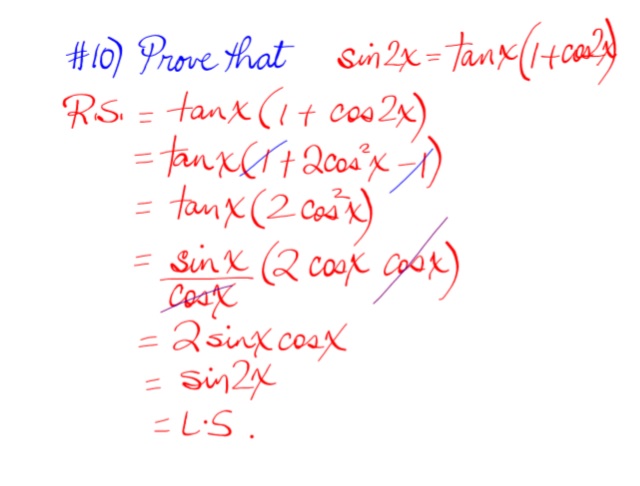 #10) Prove that sin2x = tanx(1+cos2x)
R.S. = tanx(1 + cos2x)
= tanx(1 + 2cos²x - 1)
= tanx(2cos²x)
= sinx/cosx (2 cosx cosx)
= 2sinxcosx
= sin2x
= L.S.